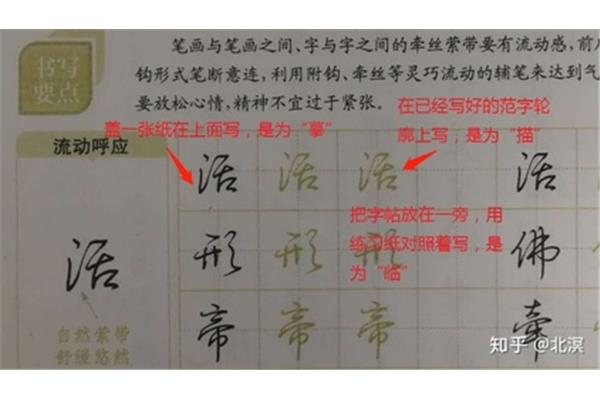 书写
要点
笔画与笔画之间、字与字之间的牵丝萦带要有流动感,前
钩形式笔断意连,利用附钩、牵丝等灵巧流动的辅笔来达到气
要放松心情,精神不宜过于紧张。
盖一张纸在上面写,是为“摹”
在已经写好的范字轮
廓上写,是为“描”
流动呼应
活 活 活 活
把字帖放在一旁,用
练习纸对照着写,是
为“临”
形 形 形 佛
活
帝 帝 帝 牵
自然萦带
舒缓悠然
知乎 @北溟